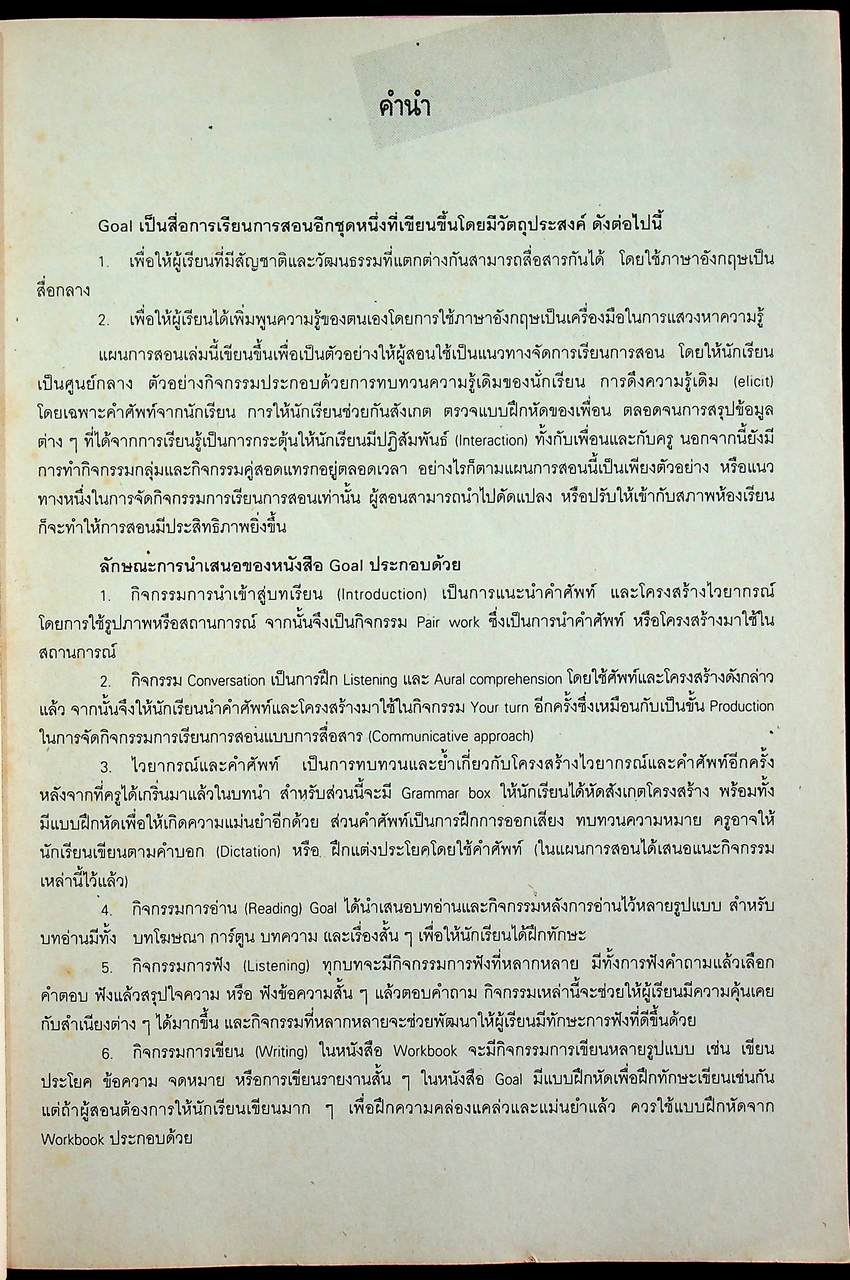 คำนำ
Goal เป็นสื่อการเรียนการสอนอีกชุดหนึ่งที่เขียนขึ้นโดยมีวัตถุประสงค์ ดังต่อไปนี้
1. เพื่อให้ผู้เรียนที่มีสัญชาติและวัฒนธรรมที่แตกต่างกันสามารถสื่อสารกันได้ โดยใช้ภาษาอังกฤษเป็น
สื่อกลาง
2. เพื่อให้ผู้เรียนได้เพิ่มพูนความรู้ของตนเองโดยการใช้ภาษาอังกฤษเป็นเครื่องมือในการแสวงหาความรู้
แผนการสอนเล่มนี้เขียนขึ้นเพื่อเป็นตัวอย่างให้ผู้สอนใช้เป็นแนวทางจัดการเรียนการสอน โดยให้นักเรียน
เป็นศูนย์กลาง ตัวอย่างกิจกรรมประกอบด้วยการทบทวนความรู้เดิมของนักเรียน การดึงความรู้เดิม (elicit)
โดยเฉพาะคำศัพท์จากนักเรียน การให้นักเรียนช่วยกันสังเกต ตรวจแบบฝึกหัดของเพื่อน ตลอดจนการสรุปข้อมูล
ต่าง ๆ ที่ได้จากการเรียนรู้เป็นการกระตุ้นให้นักเรียนมีปฏิสัมพันธ์ (Interaction) ทั้งกับเพื่อนและกับครู นอกจากนี้ยังมี
การทำกิจกรรมกลุ่มและกิจกรรมคู่สอดแทรกอยู่ตลอดเวลา อย่างไรก็ตามแผนการสอนนี้เป็นเพียงตัวอย่าง หรือแนว
ทางหนึ่งในการจัดกิจกรรมการเรียนการสอนเท่านั้น ผู้สอนสามารถนำไปดัดแปลง หรือปรับให้เข้ากับสภาพห้องเรียน
ก็จะทำให้การสอนมีประสิทธิภาพยิ่งขึ้น
ลักษณะการนำเสนอของหนังสือ Goal ประกอบด้วย
1. กิจกรรมการนำเข้าสู่บทเรียน (Introduction) เป็นการแนะนำคำศัพท์ และโครงสร้างไวยากรณ์
โดยการใช้รูปภาพหรือสถานการณ์ จากนั้นจึงเป็นกิจกรรม Pair work ซึ่งเป็นการนำคำศัพท์ หรือโครงสร้างมาใช้ใน
สถานการณ์
2. กิจกรรม Conversation เป็นการฝึก Listening และ Aural comprehension โดยใช้ศัพท์และโครงสร้างดังกล่าว
แล้ว จากนั้นจึงให้นักเรียนนำคำศัพท์และโครงสร้างมาใช้ในกิจกรรม Your turn อีกครั้งซึ่งเหมือนกับเป็นขั้น Production
ในการจัดกิจกรรมการเรียนการสอนแบบการสื่อสาร (Communicative approach)
3. ไวยากรณ์และคำศัพท์ เป็นการทบทวนและย้ำเกี่ยวกับโครงสร้างไวยากรณ์และคำศัพท์อีกครั้ง
หลังจากที่ครูได้เกริ่นมาแล้วในบทนำ สำหรับส่วนนี้จะมี Grammar box ให้นักเรียนได้หัดสังเกตโครงสร้าง พร้อมทั้ง
มีแบบฝึกหัดเพื่อให้เกิดความแม่นยำอีกด้วย ส่วนคำศัพท์เป็นการฝึกการออกเสียง ทบทวนความหมาย ครูอาจให้
นักเรียนเขียนตามคำบอก (Dictation) หรือ ฝึกแต่งประโยคโดยใช้คำศัพท์ (ในแผนการสอนได้เสนอแนะกิจกรรม
เหล่านี้ไว้แล้ว)
4. กิจกรรมการอ่าน (Reading) Goal ได้นำเสนอบทอ่านและกิจกรรมหลังการอ่านไว้หลายรูปแบบ สำหรับ
บทอ่านมีทั้ง บทโฆษณา การ์ตูน บทความ และเรื่องสั้น ๆ เพื่อให้นักเรียนได้ฝึกทักษะ
5. กิจกรรมการฟัง (Listening) ทุกบทจะมีกิจกรรมการฟังที่หลากหลาย มีทั้งการฟังคำถามแล้วเลือก
คำตอบ ฟังแล้วสรุปใจความ หรือ ฟังข้อความสั้น ๆ แล้วตอบคำถาม กิจกรรมเหล่านี้จะช่วยให้ผู้เรียนมีความคุ้นเคย
กับสำเนียงต่าง ๆ ได้มากขึ้น และกิจกรรมที่หลากหลายจะช่วยพัฒนาให้ผู้เรียนมีทักษะการฟังที่ดีขึ้นด้วย
6. กิจกรรมการเขียน (Writing) ในหนังสือ Workbook จะมีกิจกรรมการเขียนหลายรูปแบบ เช่น เขียน
ประโยค ข้อความ จดหมาย หรือการเขียนรายงานสั้น ๆ ในหนังสือ Goal มีแบบฝึกหัดเพื่อฝึกทักษะเขียนเช่นกัน
แต่ถ้าผู้สอนต้องการให้นักเรียนเขียนมาก ๆ เพื่อฝึกความคล่องแคล่วและแม่นยำแล้ว ควรใช้แบบฝึกหัดจาก
Workbook ประกอบด้วย